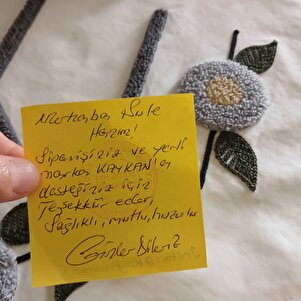 Merhaba, Şule
Hanım!
Siparişiniz ve yerli
marka KAYKAN'a
desteğiniz için
Teşekkür eder,
Sağlıklı, mutlu, huzurlu
Günler Dileriz